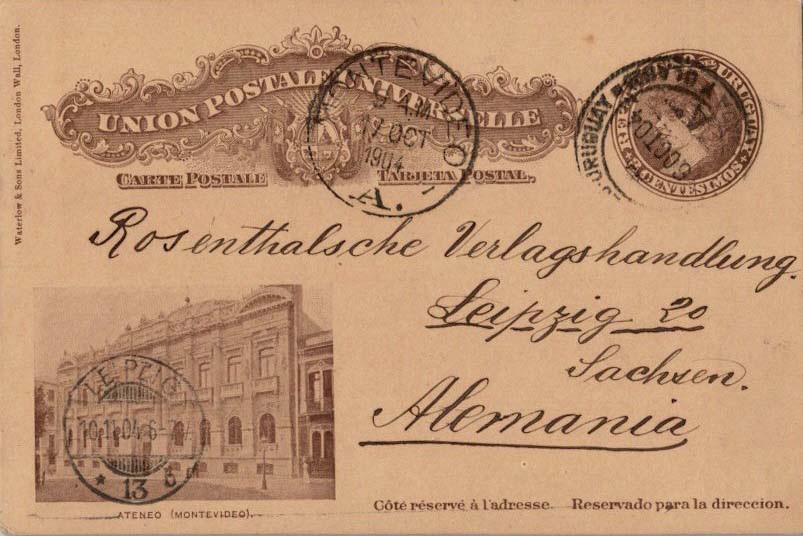 Waterlow & Sons Limited, London Wall, London.
UNION POSTALE UNIVERSELLE
CARTE POSTALE
TARJETA POSTAL.
MONTEVIDEO
9 A.M
17 OCT
1904
A.
URUGUAY
URUGUAY
CENTESIMOS
Rosenthalsche Verlagshandlung.
Leipzig 20
Sachsen.
Alemania
LEIPZIG
13
ATENEO (MONTEVIDEO).
Côté réservé à l'adresse. Reservado para la direccion.